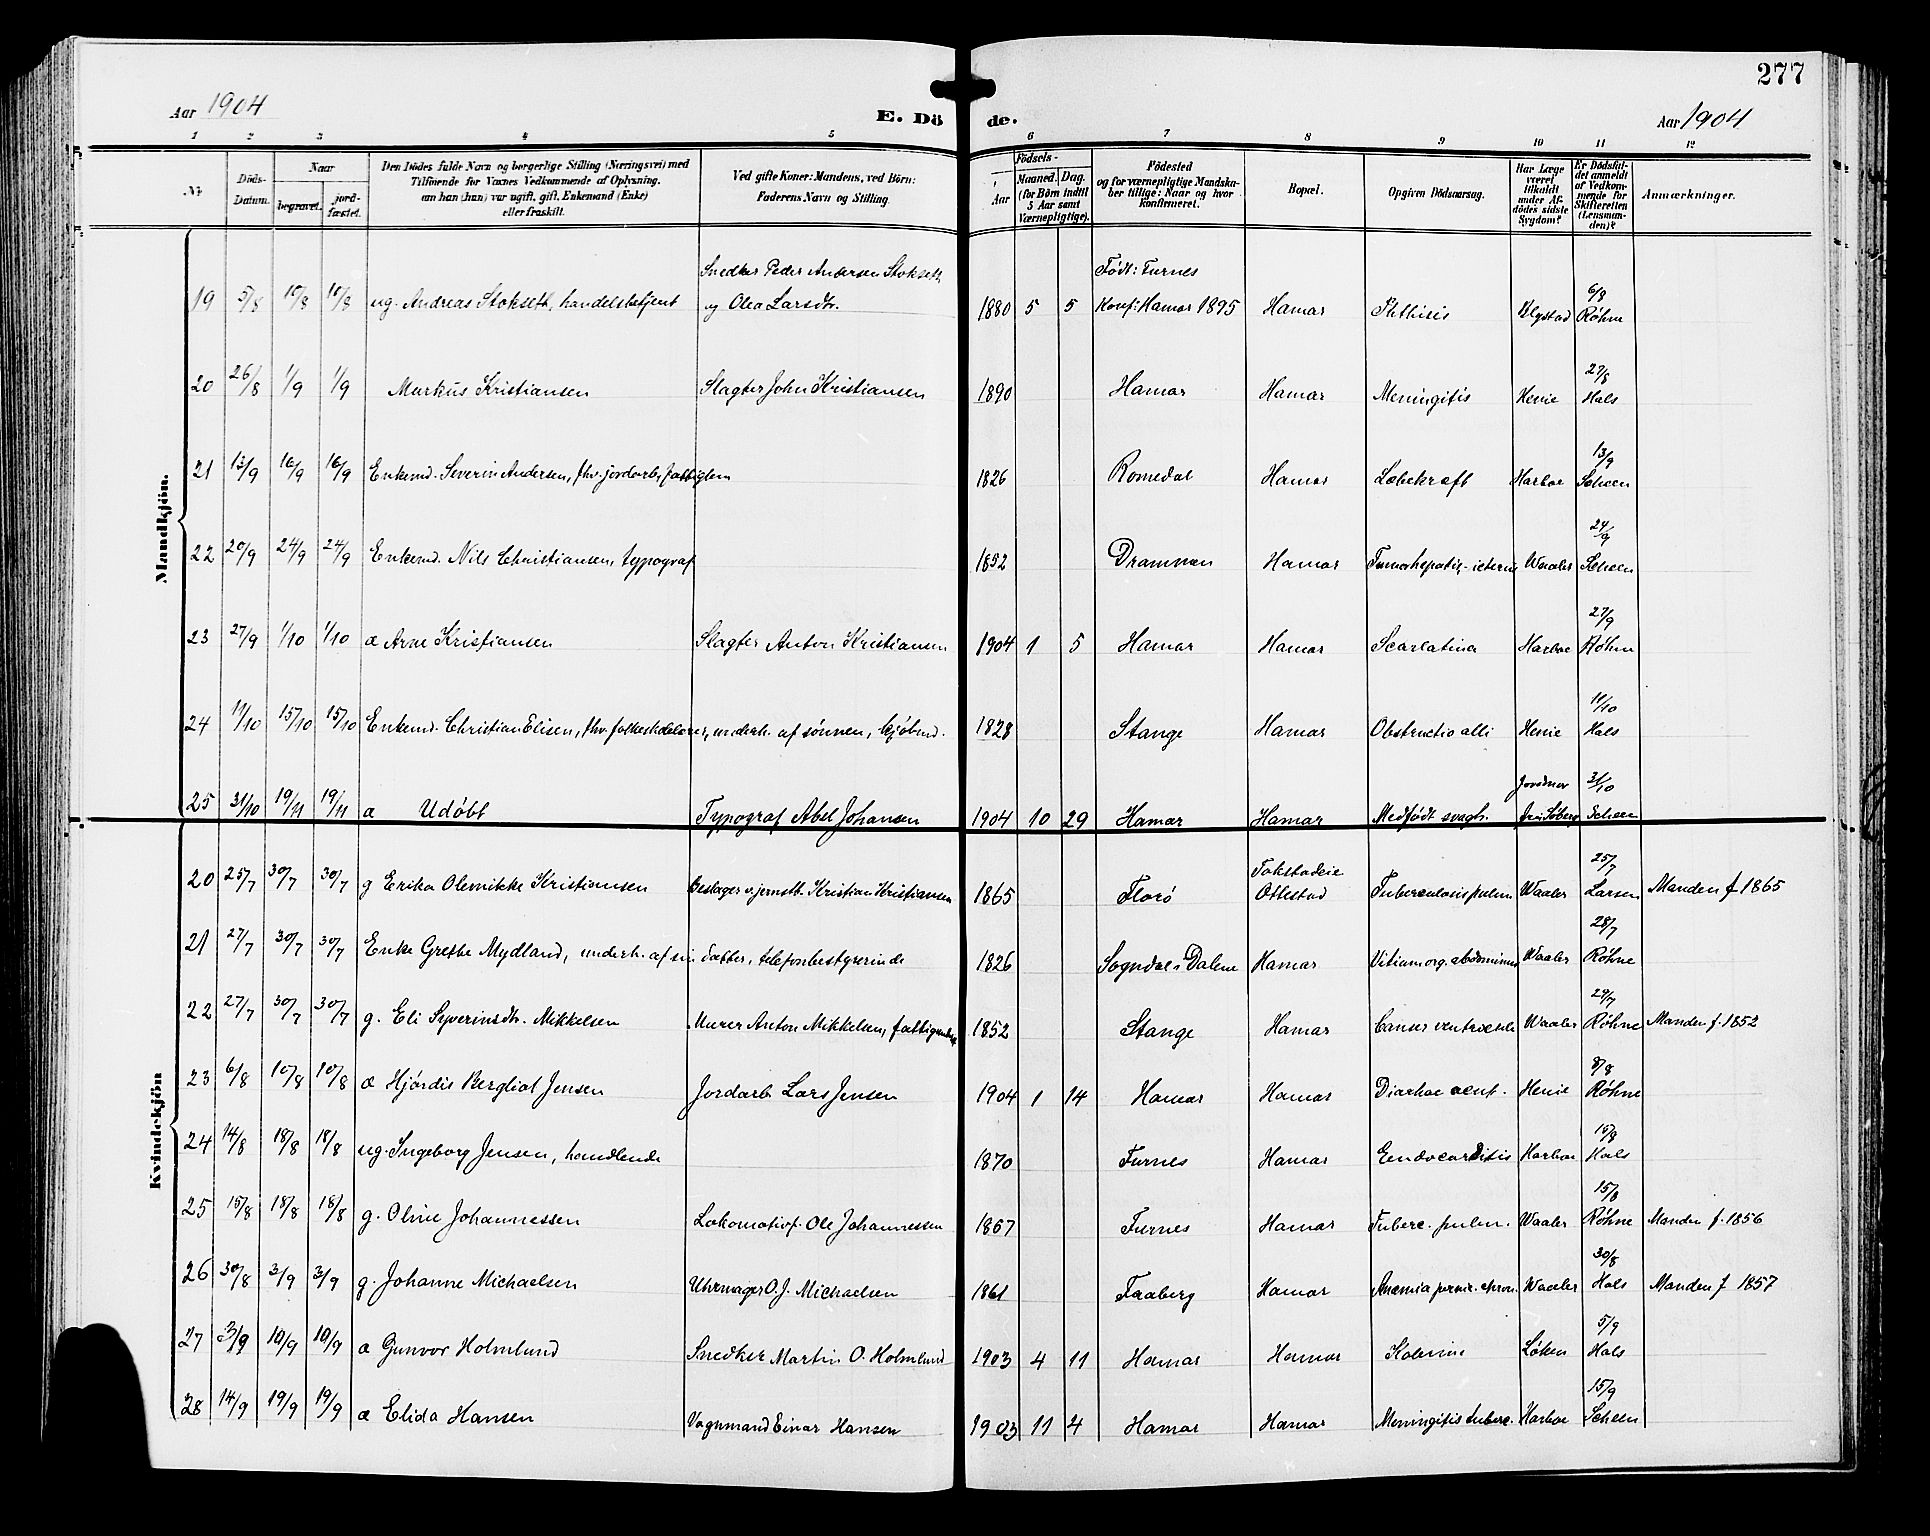 277
Aar 1904
E. Döde.
Aar 1904
1 2 3 4 5 6 7 8 9 10 11 12
No.
Döds-Datum.
Naar
begravet.
jord-fæstet.
Den Dödes fulde Navn og borgerlige Stilling (Næringsvei) med Tilföiende for Voxnes Vedkommende af Oplysning, om han (hun) var ugift, gift, Enkemand (Enke) eller fraskilt.
Ved gifte Koner: Mandens, ved Börn: Faderens Navn og Stilling.
Födsels-
Aar
Maaned. Dag.
(for Börn indtil 5 Aar samt Værnepligtige).
Födested og for værnepligtige Mandskaber tillige: Naar og hvor konfirmeret.
Bopæl.
Opgiven Dödsaarsag.
Har Læge været tilkaldt under Afdödes sidste Sygdom?
Er Dödsfaldet anmeldt af Vedkommende for Skifteretten (Lensmanden)?
Anmærkninger.
Mandkjön.
19 5/8 10/8 10/8 ug. Andreas Stokseth, handelsbetjent Snedker Peder Andersen Stokseth og Olea Larsdtr. 1880 5 5 Født: Furnes Konf: Hamar 1895 Hamar Phthisis 6/8 Røhne
20 26/8 1/9 1/9 Markus Kristiansen Slagter John Kristiansen 1890 Hamar Hamar Meningitis Henie 27/8 Hals
21 13/9 16/9 16/9 Enkemd. Severin Andersen, fhv. jordarb., fattiglem 1826 Romedal Hamar Læbekræft Harboe 13/9 Scheen
22 20/9 24/9 24/9 Enkemd. Nils Christiansen, typograf 1852 Drammen Hamar Tumor hepatis - icterus Waaler 24/9 Scheen
23 27/9 1/10 1/10 æ Arne Kristiansen Slagter Anton Kristiansen 1904 1 5 Hamar Hamar Scarlatina Harboe 27/9 Røhne
24 11/10 15/10 15/10 Enkemd. Christian Elisen, fhv. folkeskolelærer, underh. af sønnen, kjøbmd. 1828 Stange Hamar Obstructio alvi Henie 11/10 Hals
25 31/10 19/11 19/11 æ Udøbt Typograf Abel Johansen 1904 10 29 Hamar Hamar Medfødt svagh. Jordmor Fru Søberg 31/10 Scheen
Kvindekjön
20 25/7 30/7 30/7 g Erika Olemikke Kristiansen Beslager v. jernstb. Kristian Kristiansen 1865 Florø Tokstadeie Ottestad Tuberculosis pulm Waaler 25/7 Larsen Manden f 1865
21 27/7 30/7 30/7 Enke Grethe Mydland, underh. af sin datter, telefonbestyrerinde 1826 Sogndal i Dalene Hamar Vitium org. abdominus Waaler 28/7 Røhne
22 27/7 30/7 30/7 g. Eli Syverinsdtr. Mikkelsen Murer Anton Mikkelsen, 1852 Stange Hamar Cancer ventriculi Waaler 29/7 Røhne Manden f. 1852
23 6/8 10/8 10/8 æ Hjórdis Bergliot Jensen Jordarb Lars Jensen 1904 1 14 Hamar Hamar Diarhoe acut. Henie 8/8 Røhne
24 14/8 18/8 18/8 ug. Ingeborg Jensen, handlende 1870 Furnes Hamar Eendocarditis Harboe 15/8 Hals
25 15/8 18/8 18/8 g. Oline Johannessen Lokomotivf. Ole Johannessen 1867 Furnes Hamar Tuberc. pulm. Waaler 15/8 Røhne Manden f. 1856
26 30/8 3/9 3/9 g. Johanne Michaelsen Uhrmager O. J. Michaelsen 1861 Faaberg Hamar Anæmia pernic. chron. Waaler 30/8 Hals Manden f 1857
27 3/9 10/9 10/9 æ Gunvor Holmlund Snedker Martin O. Holmlund 1903 4 11 Hamar Hamar Kolerine Løken 5/9 Hals
28 14/9 19/9 19/9 æ Elida Hansen Vognmand Einar Hansen 1903 11 4 Hamar Hamar Meningitis tuberc. Harboe 15/9 Scheen